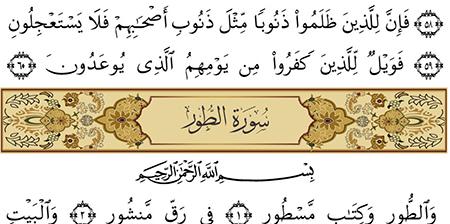 ﴿٥٨﴾ فَإِنَّ لِلَّذِينَ ظَلَمُوا۟ ذَنُوبًا مِّثْلَ ذَنُوبِ أَصْحَٰبِهِمْ فَلَا يَسْتَعْجِلُونِ
﴿٥٩﴾ فَوَيْلٌ لِّلَّذِينَ كَفَرُوا۟ مِن يَوْمِهِمُ ٱلَّذِى يُوعَدُونَ ﴿٦٠﴾
سُورَةُ الطُّورِ
بِسْمِ ٱللَّهِ ٱلرَّحْمَٰنِ ٱلرَّحِيمِ
وَٱلطُّورِ وَكِتَٰبٍ مَّسْطُورٍ ﴿١﴾ فِى رَقٍّ مَّنشُورٍ ﴿٢﴾ وَٱلْبَيْتِ